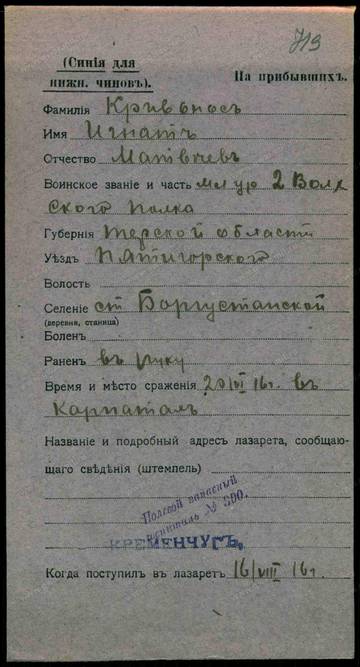 719
(Синія для
нижн. чиновъ).
На прибывшихъ.
Фамилія Кривоносъ
Имя Игнатъ
Отчество Матвѣевъ
Воинское званіе и часть мл ур 2 Волж
ского полка
Губернія Терской области
Уѣздъ Пятигорского
Волость
Селеніе ст Боргустанской
(деревня, станица)
Боленъ
Раненъ въ руку
Время и мѣсто сраженія 20/VI 16г. въ
Карпатахъ
Названіе и подробный адресъ лазарета, сообщаю-
щаго свѣдѣнія (штемпель)
Полевой запасный
госпиталь № 500.
КРЕМЕНЧУГЪ,
Когда поступилъ въ лазаретъ 16/VIII 16г.